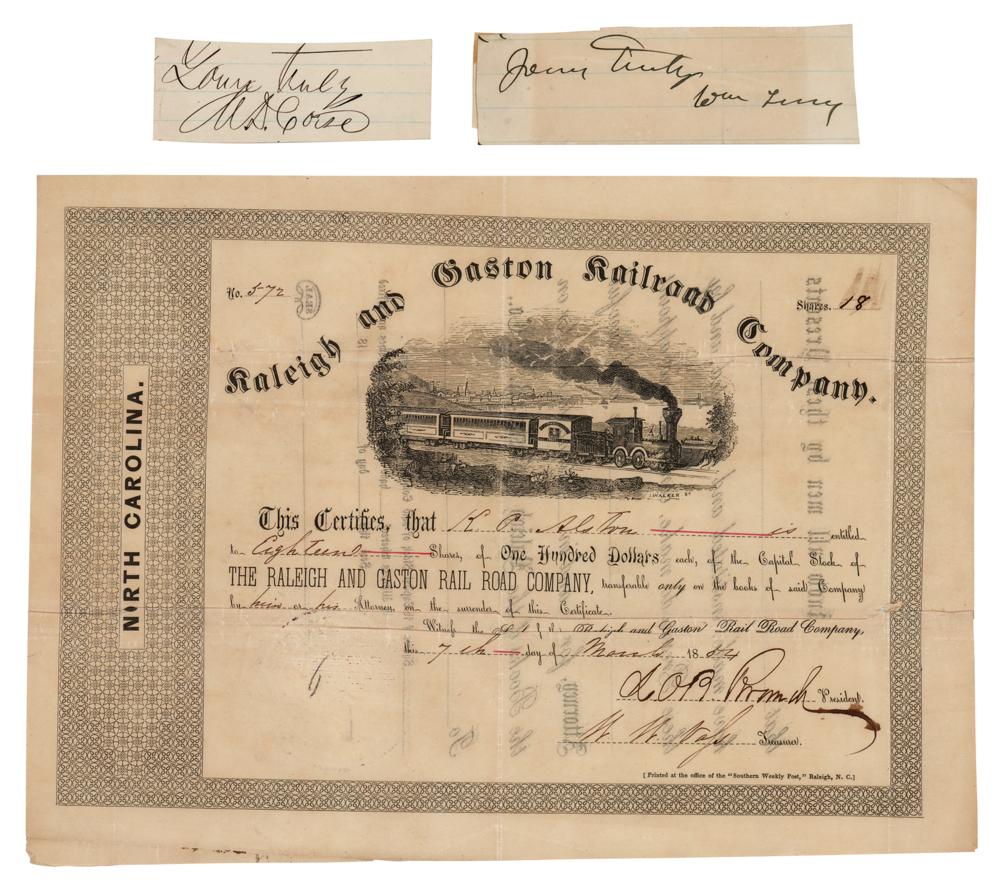 Yours truly
M. D. Corse
Yours Truly
Wm Terry
Raleigh and Gaston Railroad Company.
No. 572
SEAL
Shares. 18
NORTH CAROLINA.
J. WALKER Sc
This Certifies, that K P Alston is entitled
to Eighteen Shares, of One Hundred Dollars each, of the Capital Stock of
THE RALEIGH AND GASTON RAIL ROAD COMPANY, transferable only on the books of said Company
by him or his Attorney, on the surrender of this Certificate.
Witness the of the Raleigh and Gaston Rail Road Company,
this 7th day of March 1854
L O B Branch President.
W. W. Vass Treasurer.
[Printed at the office of the "Southern Weekly Post," Raleigh, N. C.]